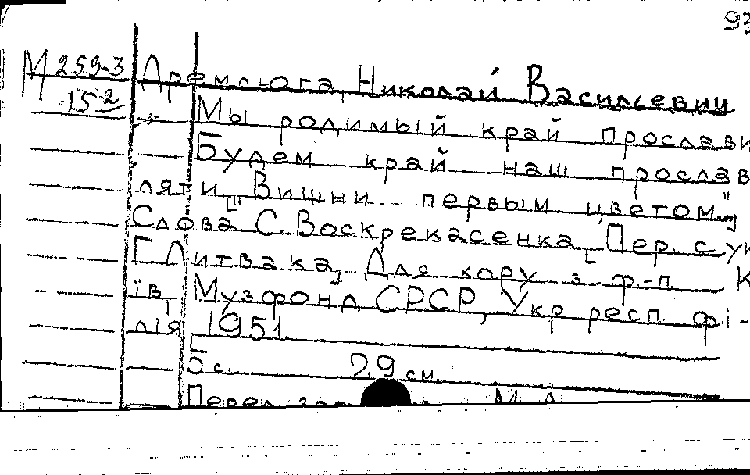 93
М 259-3 Дремлюга, Николай Васильевич
15² Мы родимый край прослави
Будем край наш прослав
ляти. [Вишни первым цветом"]
Слова С. Воскрекасенка, [Пер. с ук
Г. Литвака]. Для хору з ф-п. К
їв, Музфонд СРСР, Укр респ фі-
лія, 1951
5 с. 29 см.
Перед